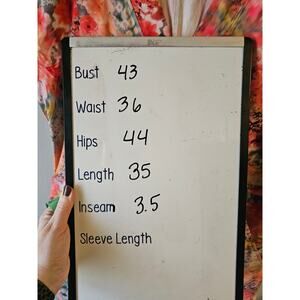 Bust 43
Waist 36
Hips 44
Length 35
Inseam 3.5
Sleeve Length